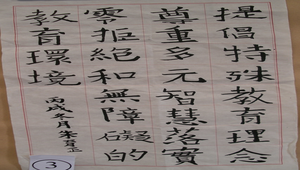 提倡特殊教育理念
尊重多元智慧落實
零拒絕和無障礙的
教育環境
丙戌冬月朱
3